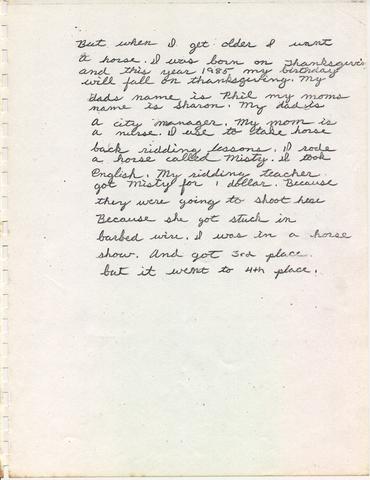 But when I get older I want
a horse. I was born on Thanksgivin
and this year 1985 my birthday
will fall on thanksgiving. My
dads name is Phil my moms
name is Sharon. My dad is
a city manager. My mom is
a nurse. I use to take horse
back ridding lessons. I rode
a horse called Misty. I took
English. My ridding teacher
got Misty for 1 dollar. Because
they were going to shoot her
Because she got stuck in
barbed wire. I was in a horse
show. And got 3rd place.
but it went to 4th place.